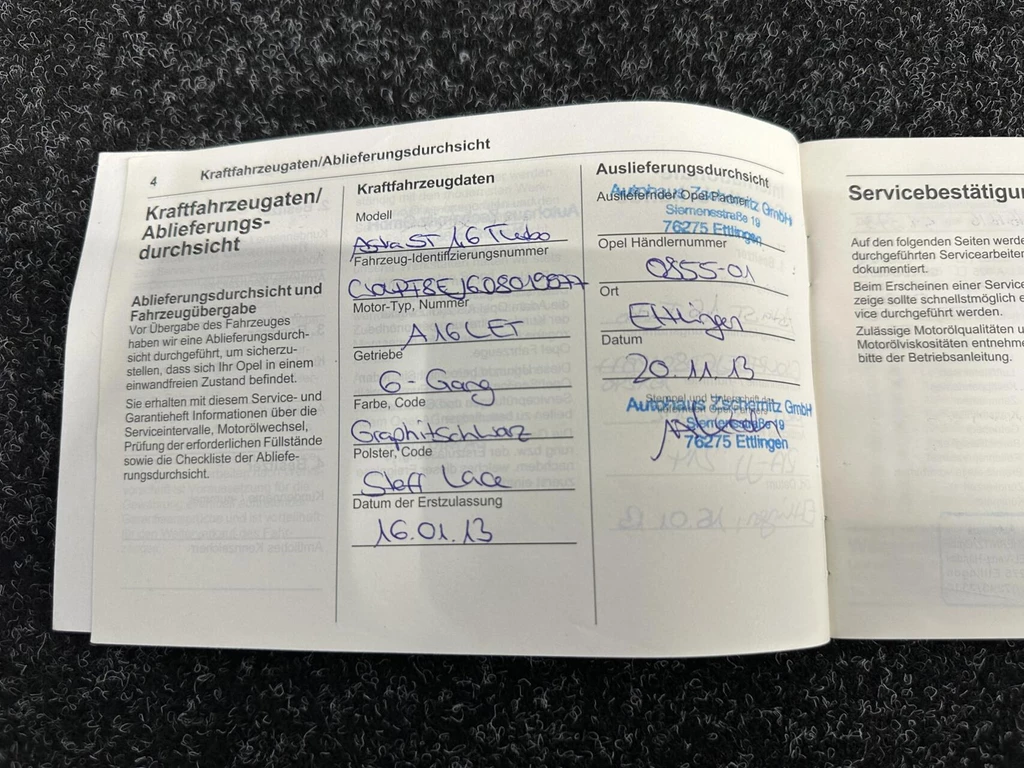 4
Kraftfahrzeugaten/Ablieferungsdurchsicht
Kraftfahrzeugaten/
Ablieferungs-
durchsicht
Ablieferungsdurchsicht und
Fahrzeugübergabe
Vor Übergabe des Fahrzeuges
haben wir eine Ablieferungsdurch-
sicht durchgeführt, um sicherzu-
stellen, dass sich Ihr Opel in einem
einwandfreien Zustand befindet.
Sie erhalten mit diesem Service- und
Garantieheft Informationen über die
Serviceintervalle, Motorölwechsel,
Prüfung der erforderlichen Füllstände
sowie die Checkliste der Abliefe-
rungsdurchsicht.
Kraftfahrzeugdaten
Modell
Astra ST 1.6 Turbo
Fahrzeug-Identifizierungsnummer
Motor-Typ, Nummer
A16LET
Getriebe
6-Gang
Farbe, Code
Graphitschwarz
Polster, Code
Steff Lace
Datum der Erstzulassung
16.01.13
Auslieferungsdurchsicht
Ausliefernder Opel Partner
Autohaus Zschernitz GmbH
Siemensstraße 19
76275 Ettlingen
Opel Händlernummer
0855-01
Ort
Ettlingen
Datum
20.11.13
Stempel und Unterschrift
Autohaus Zschernitz GmbH
Siemensstraße 19
76275 Ettlingen
Servicebestätigu
Auf den folgenden Seiten werde
durchgeführten Servicearbeiten
dokumentiert.
Beim Erscheinen einer Service
zeige sollte schnellstmöglich e
vice durchgeführt werden.
Zulässige Motorölqualitäten u
Motorölviskositäten entnehme
bitte der Betriebsanleitung.